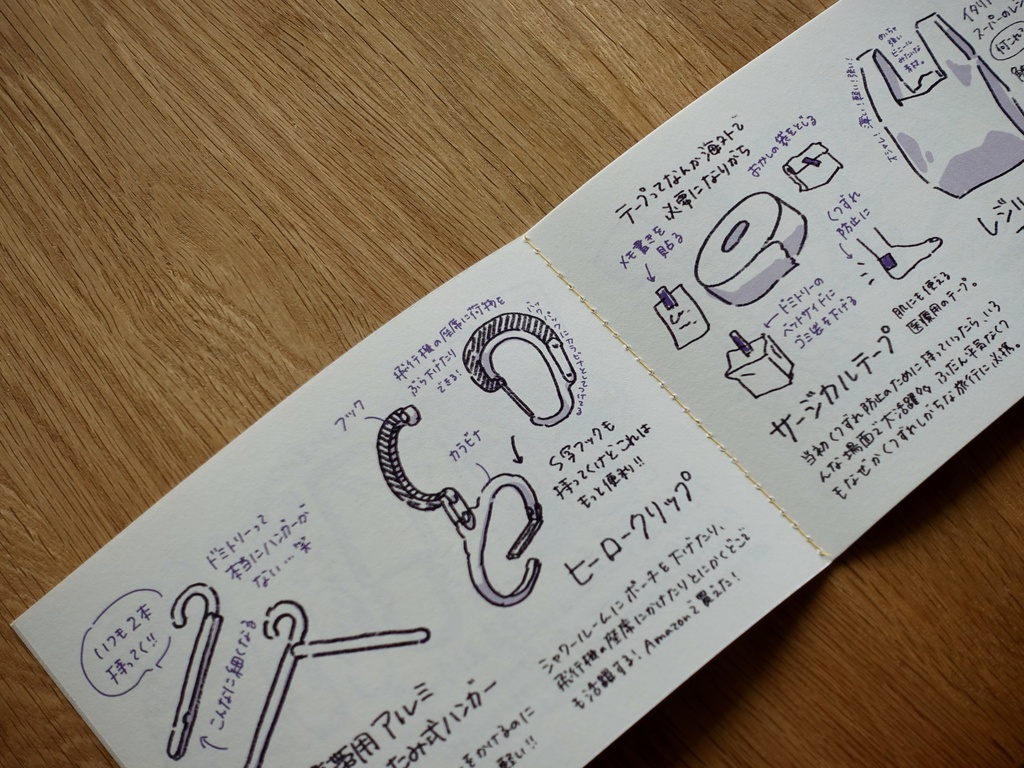 いつも2本
持ってく!!
ドミトリーって
本当にハンガーが
ない…笑
こんなに細くなる
薬用 アルミ
たたみ式ハンガー
をかけるのに
軽い!!
飛行機の座席に荷物を
ぶら下げたり
できる!
フック
カラビナ
S字フックも
持ってくけどこれは
もっと便利!!
ヒーロークリップ
シャワールームにポーチを下げたり、
飛行機の座席にかけたりとにかくどこで
も活躍する!Amazonで買えた!
テープってなんか海外で
必要になりがち
メモ書きを
貼る
おかしの袋をとじる
くつずれ
防止に
ドミトリーの
ベッドサイドに
ゴミ袋を下げる
サージカルテープ
肌にも使える
医療用のテープ。
当初くつずれ防止のために持っていったら、いろ
んな場面で大活躍。ふだん平気なくつ
もなぜかくつずれしがちな旅行に必携。
めっちゃ
強い
ビニール
みたいな
素材。
オシャレ!薄い!軽い!強い!
イタリア
スーパーのレジ
レジ